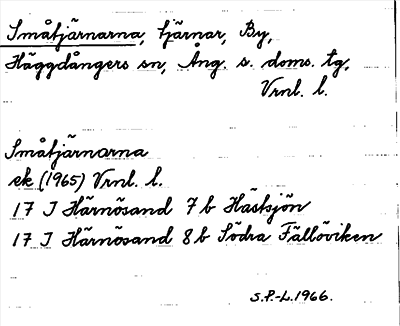 Småtjärnarna, tjärnar, By,
Häggdångers sn, Ång. s. doms. tg,
Vrnl. l.
Småtjärnarna
ek (1965) Vrnl. l.
17 J Härnösand 7 b Hästsjön
17 J Härnösand 8 b Södra Fällöviken
S.P.-L. 1966.